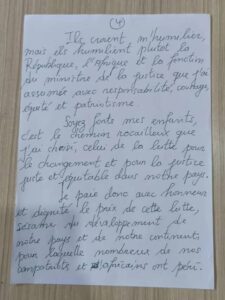 4
Ils croient, m'humilier,
mais ils humilient plutôt la
République, l'afrique et la fonction
du ministre de la justice que j'ai
assumée avec responsabilité, courage,
équité et patriotisme.
Soyez forts mes enfants,
c'est le chemin rocailleux que
j'ai choisi, celui de la lutte pour
le changement et pour la justice
juste et équitable dans notre pays.
Je paie donc avec honneur
et dignité, le prix de cette lutte,
sésame du développement de
notre pays et de notre continent
pour laquelle nombreux de nos
compatriotes et africains ont péri.